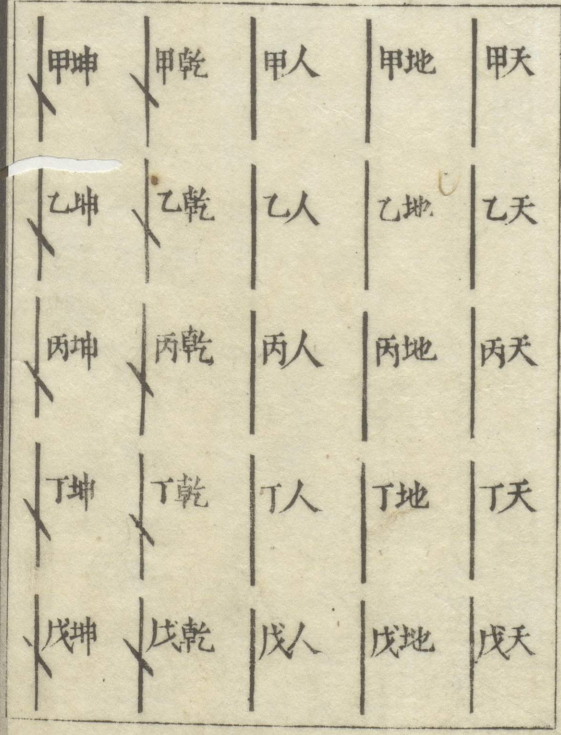 天甲
天乙
天丙
天丁
天戊
地甲
地乙
地丙
地丁
地戊
人甲
人乙
人丙
人丁
人戊
乾甲
乾乙
乾丙
乾丁
乾戊
坤甲
坤乙
坤丙
坤丁
坤戊